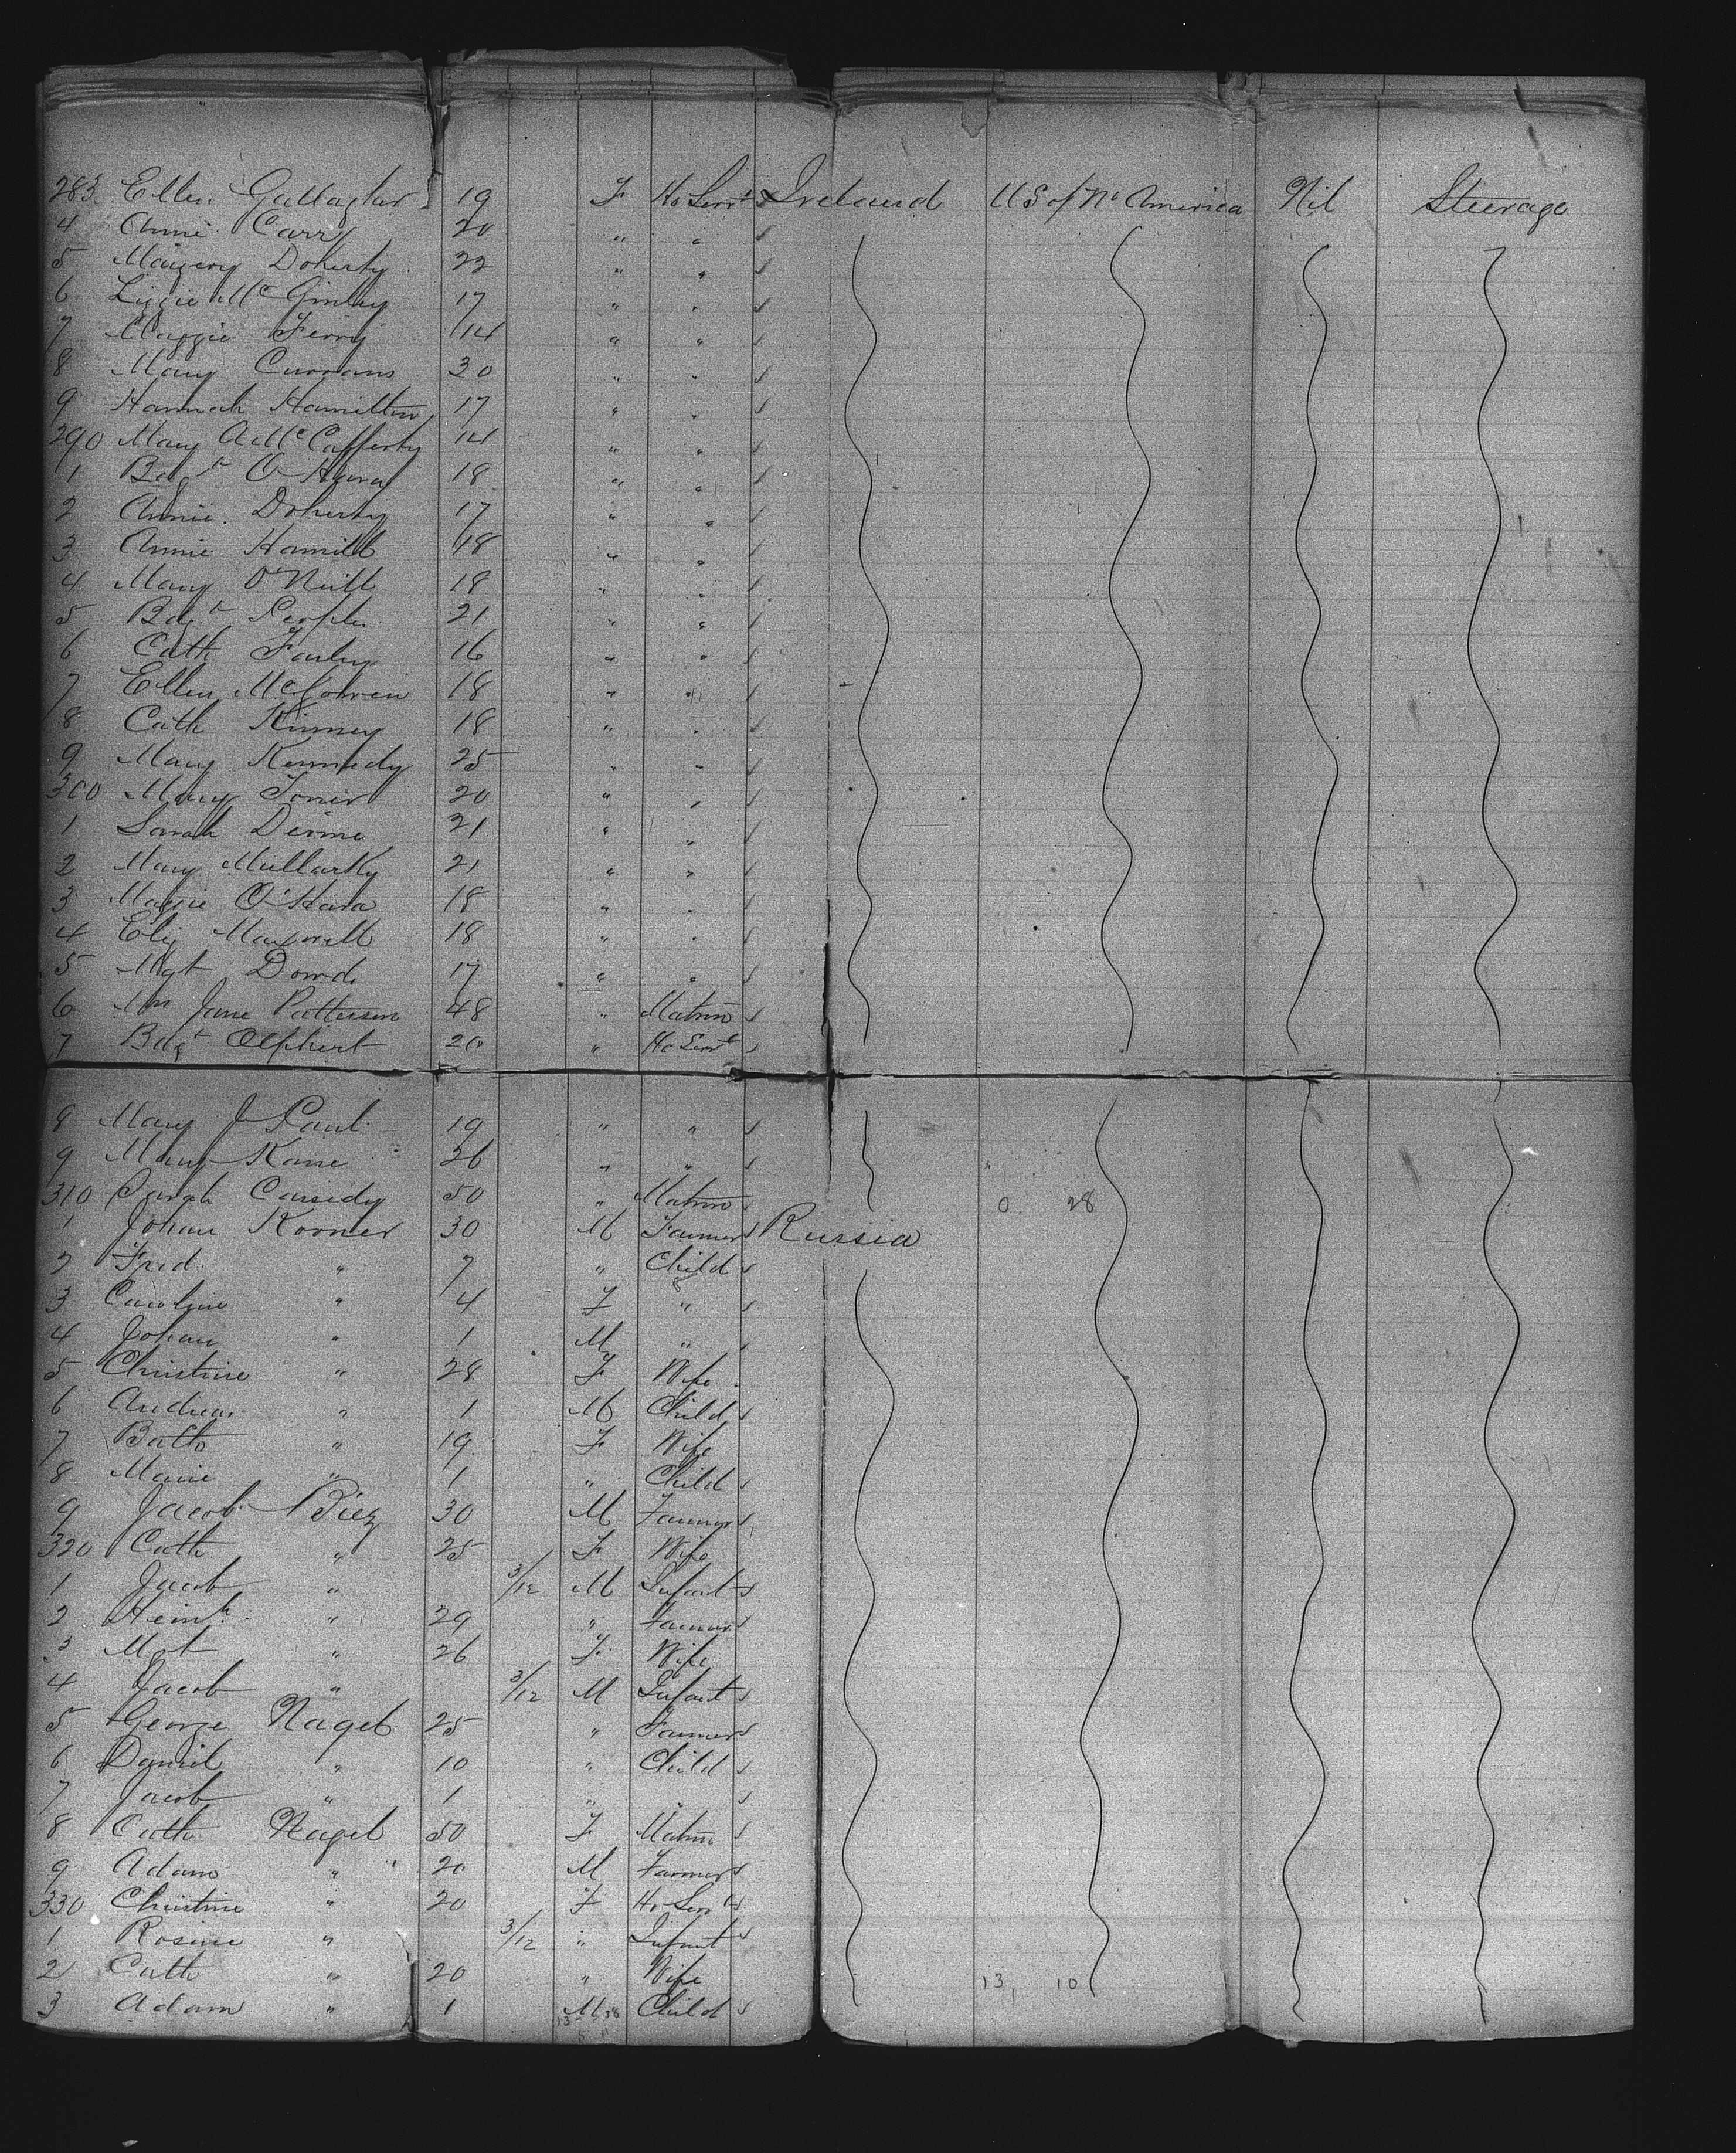 283 Ellen Gallagher 19 F Ho Servt Ireland U S of No America Nil Steerage
4 Annie Carr 20 " "
5 Maigery Doherty 22 " "
6 Lizzie McGinley 17 " "
7 Maggie Ferry 14 " "
8 Mary Currans 30 " "
9 Hannah Hamilton 17 " "
290 Mary A McCafferty 14 " "
1 Bdgt O'Hara 18 " "
2 Annie Doherty 17 " "
3 Annie Hamill 18 " "
4 Mary O'Neill 18 " "
5 Bdgt Peoples 21 " "
6 Cath Farley 16 " "
7 Ellen 18 " "
8 Cath Kinney 18 " "
9 Mary Kennedy 25 " "
300 Mary Toner 20 " "
1 Sarah 21 " "
2 Mary Mullarky 21 " "
3 Maggie O'Hara 18 " "
4 Eliz Maxwell 18 " "
5 Mgt Dowd 17 " "
6 Jane Patterson 48 " Matron
7 Bdgt Olphert 20 " Ho Servt
8 Mary J Paul 19 " "
9 Mary Kane 26 " "
310 Sarah Cassidy 50 " Matron 0 28
1 Johan Korner 30 M Farmer Russia
2 Fred " 7 " Child
3 Caroline " 4 F "
4 Johan " 1 M "
5 Christine " 28 F Wife
6 Andreas " 1 M Child
7 " 19 F Wife
8 Marie " 1 " Child
9 Jacob Biez 30 M Farmer
320 Cath " 25 F Wife
1 Jacob " 3/12 M Infant
2 Heinh " 29 " Farmer
3 Mgt " 26 F Wife
4 Jacob " 3/12 M Infant
5 George Nagel 25 " Farmer
6 Daniel " 10 " Child
7 Jacob " 1 " "
8 Cath Nagel 50 F Matron
9 Adam " 20 M Farmer
330 Christine " 20 F Ho Servt
1 Rosine " 3/12 " Infant
2 Cath " 20 " Wife 13 10
3 Adam " 1 M Child